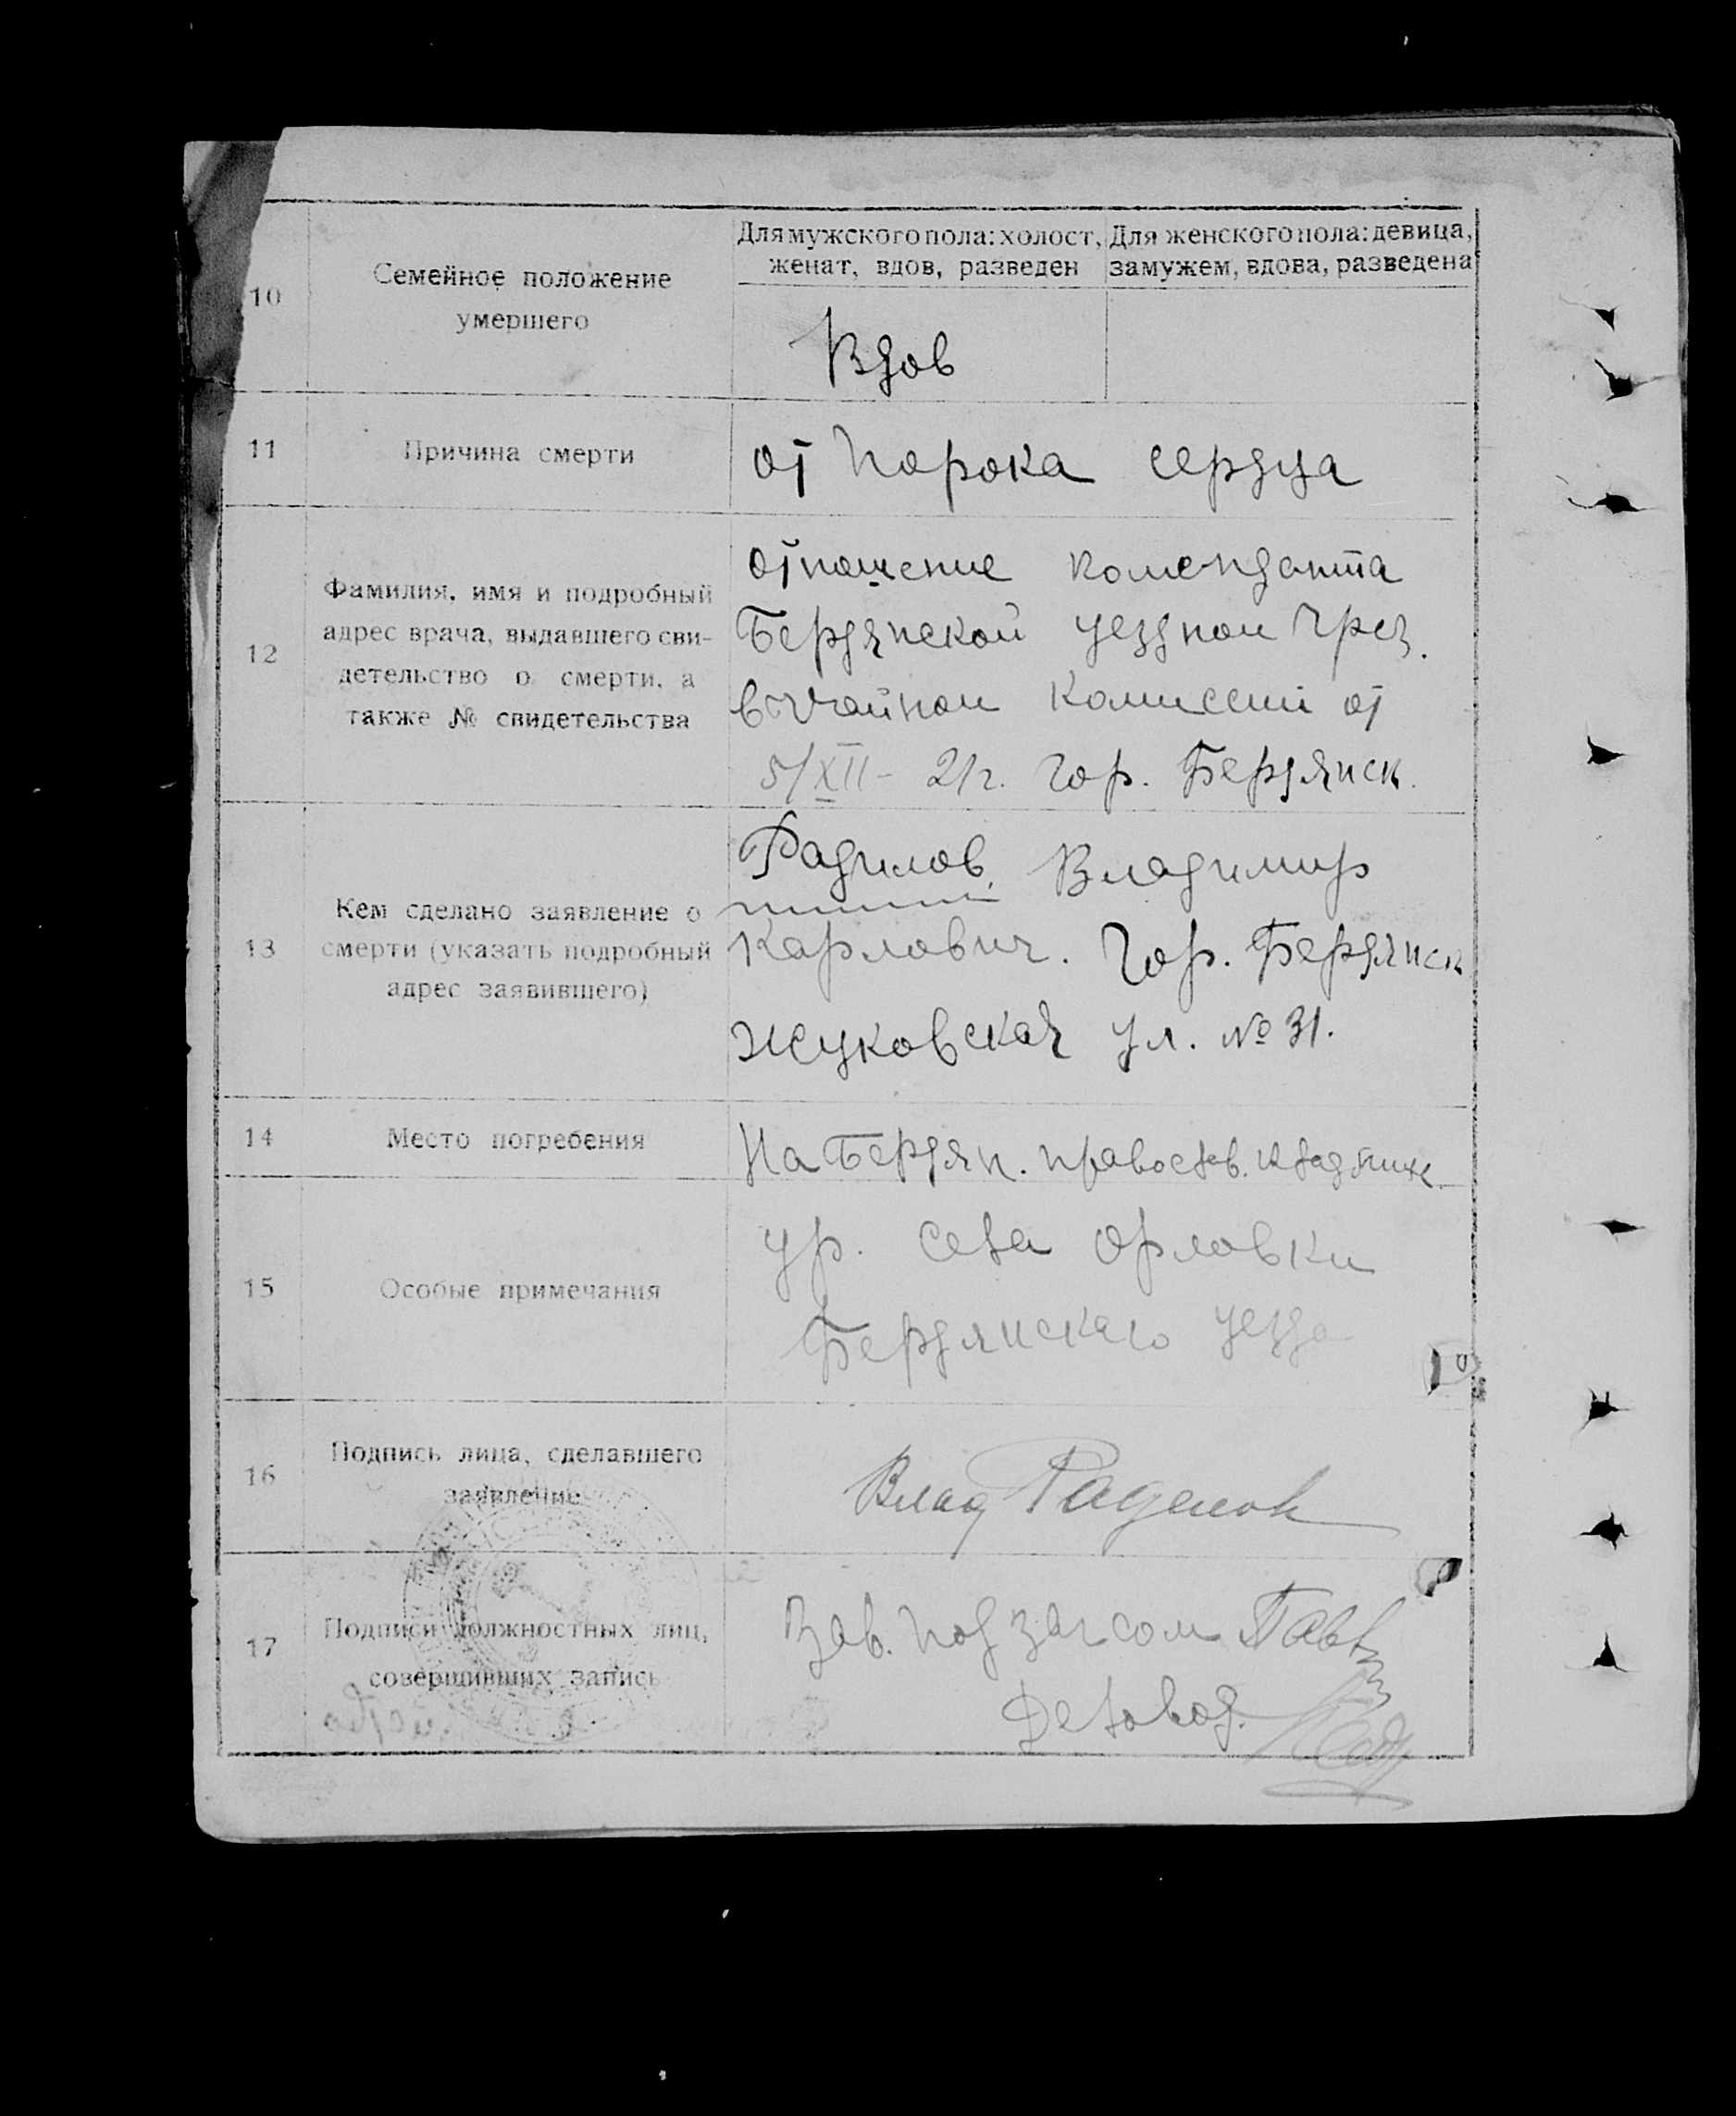 Для мужского пола: холост,
женат, вдов, разведен
Для женского пола: девица,
замужем, вдова, разведена
10
Семейное положение
умершего
Вдов
11
Причина смерти
от порока сердца
12
Фамилия, имя и подробный
адрес врача, выдавшего сви-
детельство о смерти, а
также № свидетельства
отношение коменданта
Бердянской уездной Чрез.
вычайной Комиссии от
5/XII - 21г. гор. Бердянск.
13
Кем сделано заявление о
смерти (указать подробный
адрес заявившего)
Радилов Владимир
Карлович. Гор. Бердянск
Жуковская ул. № 31.
14
Место погребения
На Бердян. православ. кладбище
15
Особые примечания
ур. села Орловки
Бердянского уезда
16
Подпись лица, сделавшего
заявление
Влад
17
Подписи должностных лиц,
совершивших запись
Зав. подзагсом
Деловод.